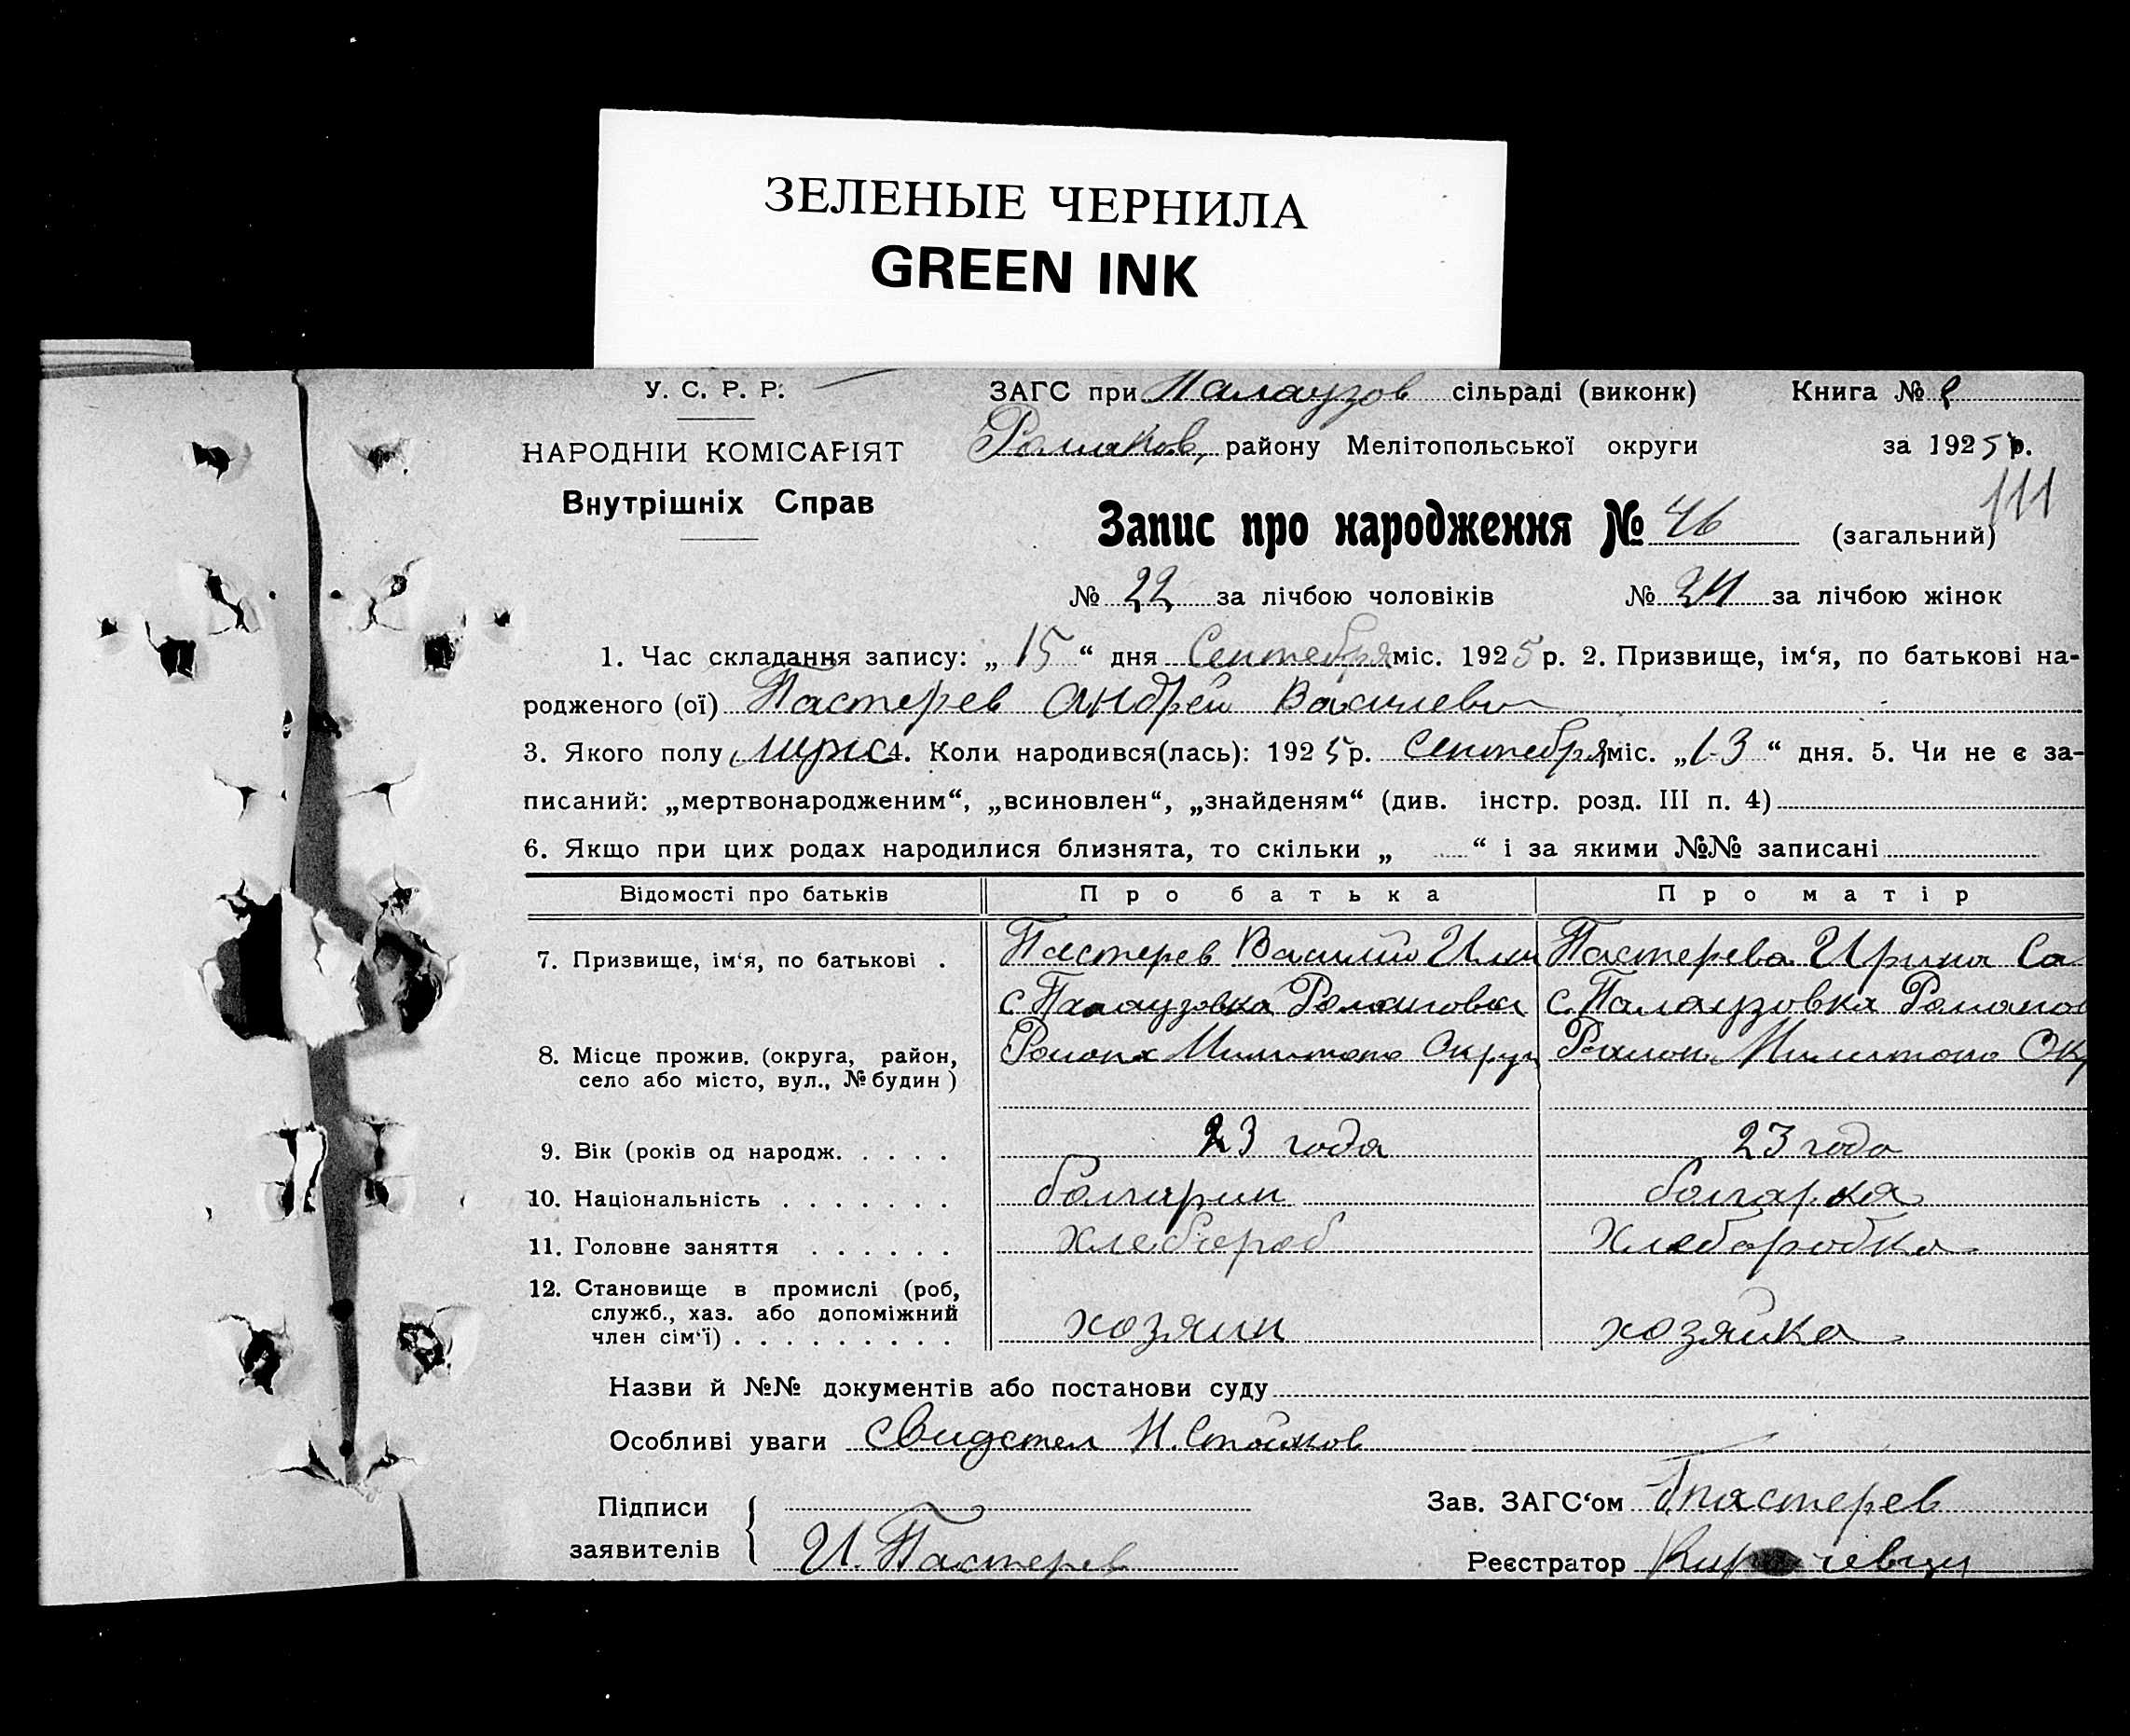 ЗЕЛЕНЫЕ ЧЕРНИЛА
GREEN INK
У. С. Р. Р.
НАРОДНІЙ КОМІСАРІЯТ
Внутрішніх Справ
ЗАГС при Палаузов сільраді (виконк) Книга №
Романов. району Мелітопольської округи за 1925 р.
111
Запис про народження № 46 (загальний)
№ 22 за лічбою чоловіків № 24 за лічбою жінок
1. Час складання запису: „ 15 “ дня Сентебря міс. 1925 р. 2. Призвище, ім‘я, по батькові на-
родженого (ої) Пастерев Андрей Василеви
3. Якого полу 4. Коли народився(лась): 1925 р. Сентебря міс. „13“ дня. 5. Чи не є за-
писаний: „мертвонародженим“, „всиновлен“, „знайденям“ (див. інстр. розд. III п. 4)
6. Якщо при цих родах народилися близнята, то скільки „ “ і за якими №№ записані
Відомості про батьків Про батька Про матір
7. Призвище, ім‘я, по батькові . Пастерев Василий Или Пастерева Ирина Са
с Палаузовка Романовка с. Палаузовка Романов
8. Місце прожив. (округа, район, Района Милитопо Округ Района Милитопо Ок
село або місто, вул., № будин )
9. Вік (років од народж. . . . . 23 года 23 года
10. Національність . . . . . . . болгарин болгарка
11. Головне заняття . . . . . . хлебороб хлеборобка
12. Становище в промислі (роб,
служб., хаз. або допоміжний
член сім‘ї) . . . . . . . . . хозяин хозяйка
Назви й №№ документів або постанови суду
Особливі уваги свидетел Н. Стойков
Підписи Зав. ЗАГС‘ом Пастерев
заявителів И. Пастерев
Реєстратор